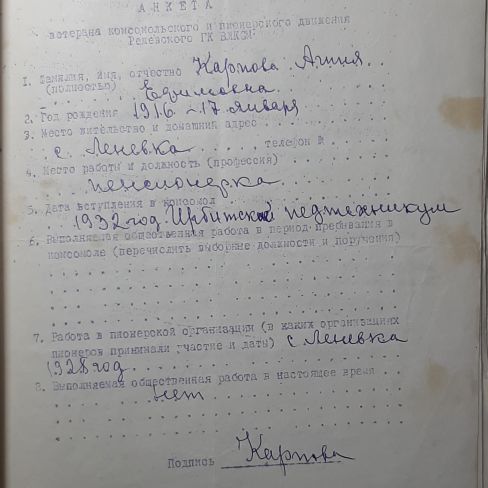 АНКЕТА
ветерана комсомольского и пионерского движения
Режевского ГК ВЛКСМ
1. Фамилия, имя, отчество Карпова Агния
(полностью) Ефимовна
2. Год рождения 1916 - 17 января
3. Место жительство и домашний адрес
с. Леневка телефон №
4. Место работы и должность (профессия)
пенсионерка
5. Дата вступления в комсомол
1932 год Ирбитский педтехникум
6. Выполняемая общественная работа в период пребывания в
комсомоле (перечислить выборные должности и поручения)
7. Работа в пионерской организации (в каких организациях
пионеров принимали участие и даты) с. Леневка
1928 год
8. Выполняемая общественная работа в настоящее время
нет
Подпись Карпова